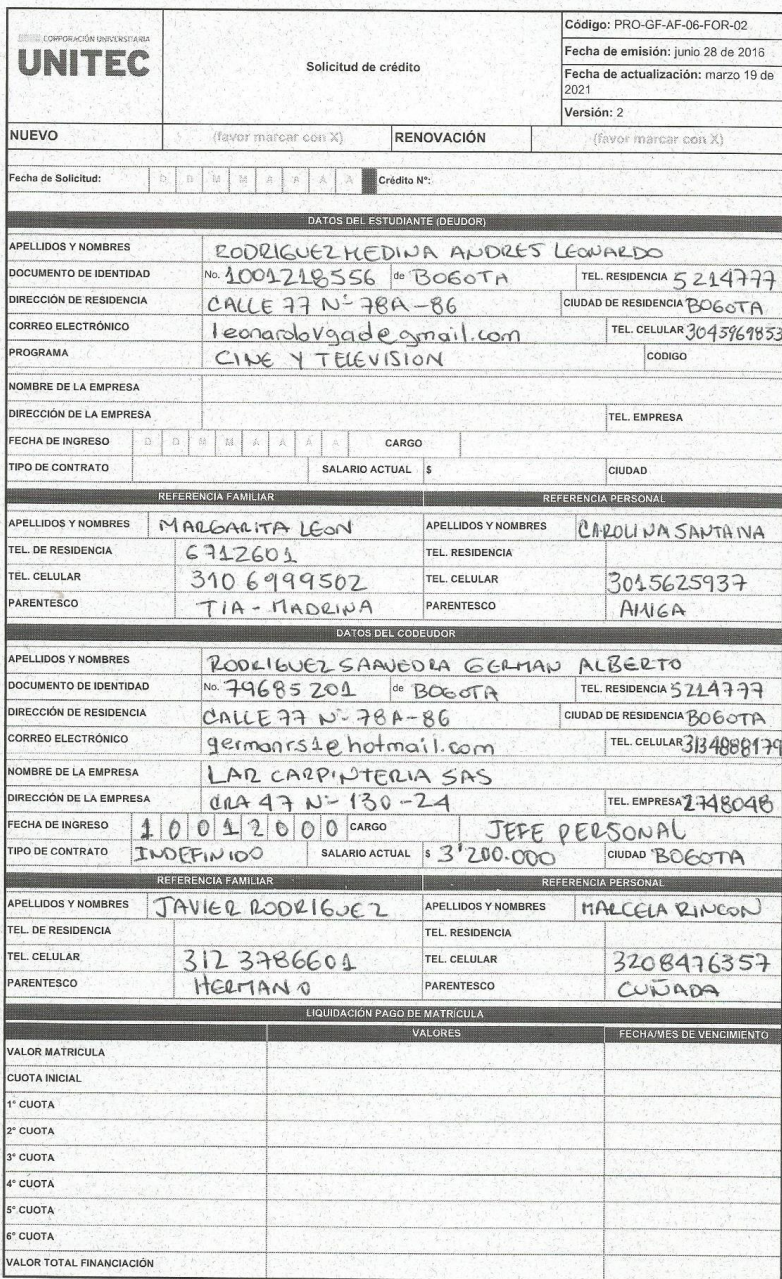 CORPORACIÓN UNIVERSITARIA
UNITEC
Solicitud de crédito
Código: PRO-GF-AF-06-FOR-02
Fecha de emisión: junio 28 de 2016
Fecha de actualización: marzo 19 de 2021
Versión: 2
NUEVO (favor marcar con X) RENOVACIÓN (favor marcar con X)
Fecha de Solicitud: D D M M A A A A Crédito N°:
DATOS DEL ESTUDIANTE (DEUDOR)
APELLIDOS Y NOMBRES RODRIGUEZ MEDINA ANDRES LEONARDO
DOCUMENTO DE IDENTIDAD No. 1001218556 de BOGOTA TEL. RESIDENCIA 5214777
DIRECCIÓN DE RESIDENCIA CALLE 77 Nº 78A-86 CIUDAD DE RESIDENCIA BOGOTA
CORREO ELECTRÓNICO leonardovgad@gmail.com TEL. CELULAR 3045969853
PROGRAMA CINE Y TELEVISION CÓDIGO
NOMBRE DE LA EMPRESA
DIRECCIÓN DE LA EMPRESA TEL. EMPRESA
FECHA DE INGRESO D D M M A A A A CARGO
TIPO DE CONTRATO SALARIO ACTUAL $ CIUDAD
REFERENCIA FAMILIAR REFERENCIA PERSONAL
APELLIDOS Y NOMBRES MARGARITA LEON APELLIDOS Y NOMBRES CAROLINA SANTANA
TEL. DE RESIDENCIA 6712601 TEL. RESIDENCIA
TEL. CELULAR 310 6999502 TEL. CELULAR 3015625937
PARENTESCO TIA - MADRINA PARENTESCO AMIGA
DATOS DEL CODEUDOR
APELLIDOS Y NOMBRES RODRIGUEZ SAAVEDRA GERMAN ALBERTO
DOCUMENTO DE IDENTIDAD No. 79685201 de BOGOTA TEL. RESIDENCIA 5214777
DIRECCIÓN DE RESIDENCIA CALLE 77 Nº 78A-86 CIUDAD DE RESIDENCIA BOGOTA
CORREO ELECTRÓNICO germanrs1@hotmail.com TEL. CELULAR 3134888179
NOMBRE DE LA EMPRESA LAR CARPINTERIA SAS
DIRECCIÓN DE LA EMPRESA CRA 47 Nº 130-24 TEL. EMPRESA 2748048
FECHA DE INGRESO 1 0 0 1 2 0 0 0 CARGO JEFE PERSONAL
TIPO DE CONTRATO INDEFINIDO SALARIO ACTUAL $ 3'200.000 CIUDAD BOGOTA
REFERENCIA FAMILIAR REFERENCIA PERSONAL
APELLIDOS Y NOMBRES JAVIER RODRIGUEZ APELLIDOS Y NOMBRES MARCELA RINCON
TEL. DE RESIDENCIA TEL. RESIDENCIA
TEL. CELULAR 312 3786601 TEL. CELULAR 3208476357
PARENTESCO HERMANO PARENTESCO CUÑADA
LIQUIDACIÓN PAGO DE MATRÍCULA
VALORES FECHA/MES DE VENCIMIENTO
VALOR MATRICULA
CUOTA INICIAL
1° CUOTA
2° CUOTA
3° CUOTA
4° CUOTA
5° CUOTA
6° CUOTA
VALOR TOTAL FINANCIACIÓN